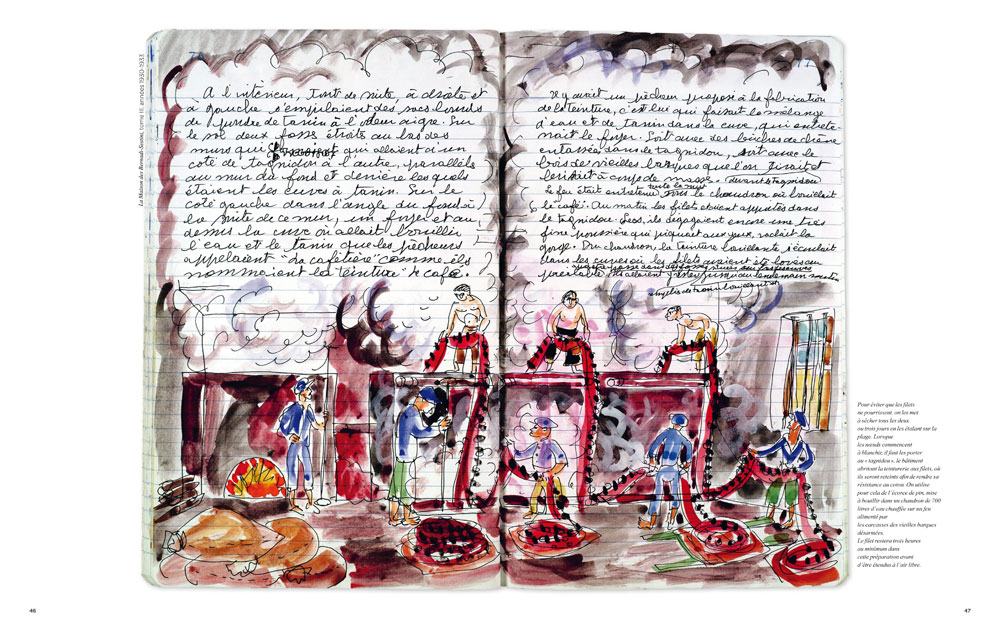 La Maison des Renault-Sessini, tome III, années 1930-1933
A l'intérieur, tout de suite, à droite et
à gauche s'empilaient des sacs lourds
de poudre de tanin à l'odeur aigre. Sur
le sol deux fosses étroites au bas des
murs qui allaient d'un
coté de tagnidou à l'autre, parallèle
au mur du fond et derrière lesquels
étaient les cuves à tanin. Sur le
coté gauche dans l'angle du fond à
la suite de ce mur, un foyer et au
dessus la cuve où allait bouillir
l'eau et le tanin que les pêcheurs
appelaient "la cafetière" comme ils
nommaient la teinture "le café.
Il y avait un pêcheur proposé à la fabrication
de la teinture, c'est lui qui faisait le mélange
d'eau et de tanin dans la cuve, qui entrete
nait le foyer. Soit avec des bûches de chêne
entassées dans le tagnidou, soit avec le
bois de vieilles barques que l'on tirait et
brisait à coups de masse devant le tagnidou
toute la nuit
Le feu était entretenu sous le chaudron où bouillait
le café. Au matin les filets étaient apportés dans
le tagnidou. Secs, ils dégageaient encore une très
fine poussière qui piquait aux yeux, raclait la
gorge. Du chaudron, la teinture bouillante s'écoulait
dans les cuves où les filets avaient été lovés au
préalable. Ils allaient y rester jusqu'au lendemain matin
Pour éviter que les filets
ne pourrissent, on les met
à sécher tous les deux
ou trois jours en les étalant sur la
plage. Lorsque
les nœuds commencent
à blanchir, il faut les porter
au « tagnidou », le bâtiment
abritant la teinturerie aux filets, où
ils seront reteints afin de rendre sa
résistance au coton. On utilise
pour cela de l'écorce de pin, mise
à bouillir dans un chaudron de 700
litres d'eau chauffée sur un feu
alimenté par
les carcasses des vieilles barques
désarmées.
Le filet restera trois heures
au minimum dans
cette préparation avant
d'être étendus à l'air libre.
46
47